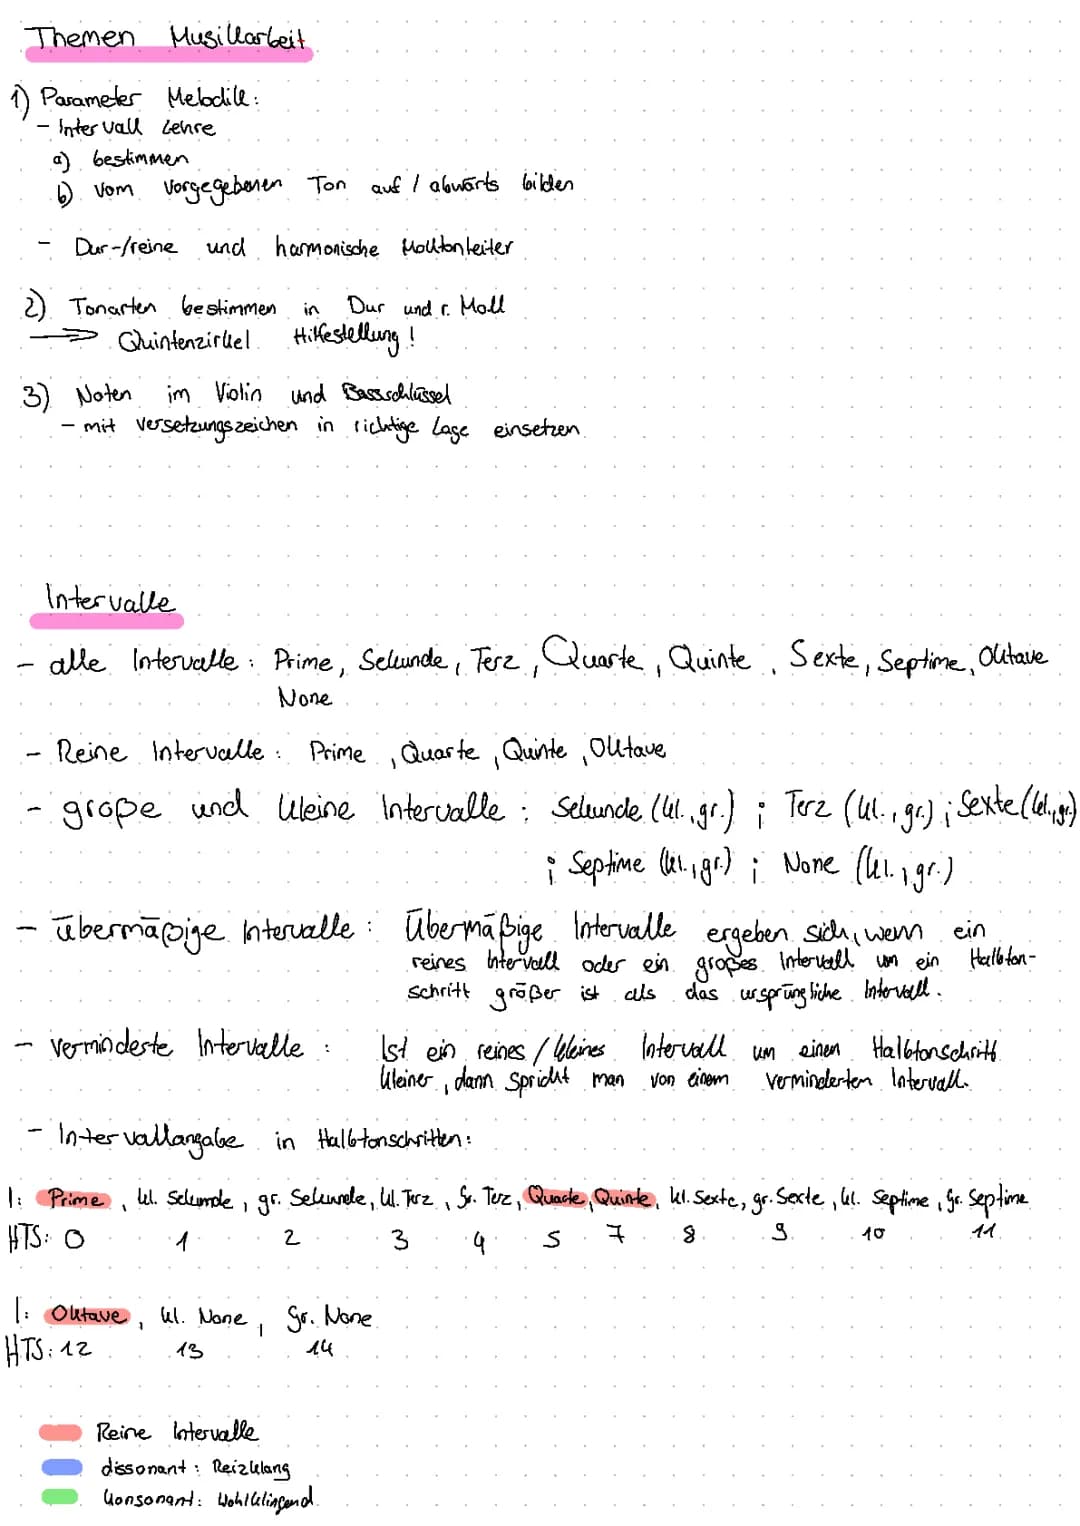 Themen Musikarbeit
1) Parameter Melodik:
- Intervall Lehre
a) bestimmen
b) vom vorgegebenen Ton auf / abwärts bilden
- Dur-/reine und harmonische Molltonleiter
2) Tonarten bestimmen in Dur und r. Moll
⟹ Quintenzirkel Hilfestellung!
3) Noten im Violin und Bassschlüssel
- mit Versetzungszeichen in richtige Lage einsetzen
Intervalle
- alle Intervalle: Prime, Sekunde, Terz, Quarte, Quinte, Sexte, Septime, Oktave
None
- Reine Intervalle: Prime, Quarte, Quinte, Oktave
- große und kleine Intervalle: Sekunde (kl., gr.); Terz (kl., gr.); Sexte (kl., gr.)
; Septime (kl., gr.); None (kl., gr.)
- übermäßige Intervalle: Übermäßige Intervalle ergeben sich, wenn ein
reines Intervall oder ein großes Intervall um ein Halbton-
schritt größer ist als das ursprüngliche Intervall.
- verminderte Intervalle: Ist ein reines / kleines Intervall um einen Halbtonschritt
kleiner, dann spricht man von einem verminderten Intervall.
- Intervallangabe in Halbtonschritten:
I: Prime, kl. Sekunde, gr. Sekunde, kl. Terz, Gr. Terz, Quarte, Quinte, kl. Sexte, gr. Sexte, kl. Septime, Gr. Septime
HTS: 0 1 2 3 4 5 7 8 9 10 11
I: Oktave, kl. None, Gr. None
HTS: 12 13 14
Reine Intervalle
dissonant: Reizklang
Konsonant: Wohlklingend